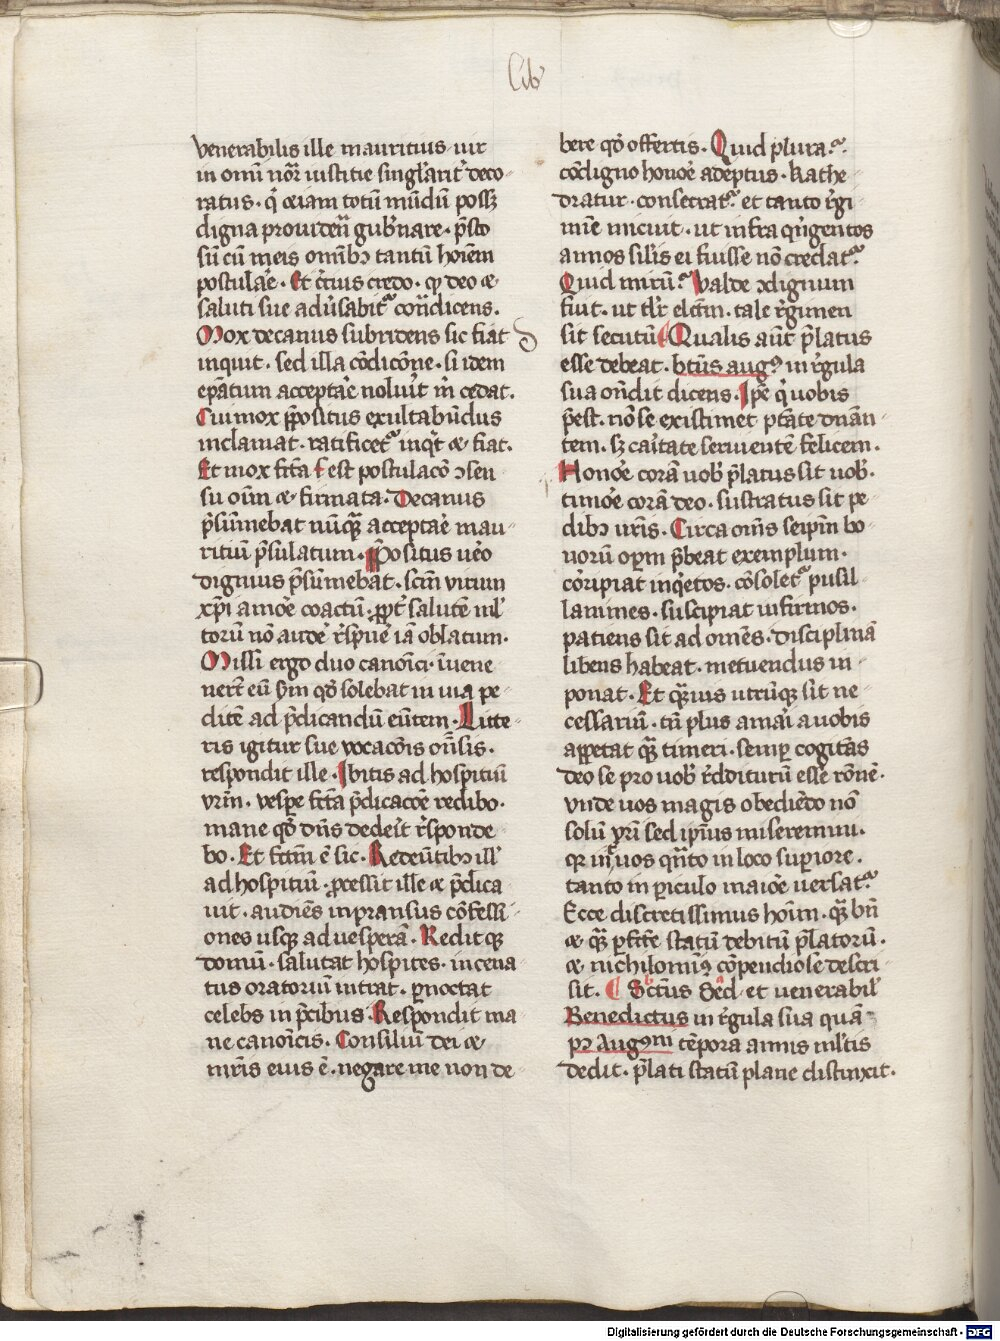 Lib'
venerabilis ille mauritius uir
in omī nōr iusticie singl'arit' deco-
ratus. q̇ eciam totū mūdū possꝫ
digna prouidēti gub'nare. p̄sto
sū cū meis omībꝫ tantū hoīem
postula'e. Et c̄cius credo. qꝫ deo ⁊
saluti sue adu'sabit' cōt'dicens.
Mox decanus subridens sic fiat
inquit. sed illa cōdicōne. si idem
ep̄atum accepta'e nolu'it m̄ cedat.
Cui mox p̄positus exultabūdus
inclamat. ratificet' inq̇t ⁊ fiat.
Et mox fc̄ta est postulacō ↄsen-
su oīm ⁊ firmata. Decanus
p̄sūmebat nūq̄ accepta'e mau-
ritiū p̄sulatum. P̄positus ue'o
dignius p̄sūmebat. scīm virium
xp̄i amo'e coactū. ꝓpt' salutē ml'-
torū nō aude'e r̄spue'e iā oblatum.
Missi ergo duo canoīci. īuene-
nert' eū sīn qd' solebat in uia pe-
ditē ad p̄dicandū eūtem. Litte-
ris igitur sue vocacōis onsis.
respondit ille. Ibitis ad hospitiū
vr̄m. vespe fc̄ta p̄dicacōe redibo.
mane qd' dn̄s dede'it r̄sponde-
bo. Et fcm̄ ē sic. Redeūtibꝫ ill'
ad hospitiū. ꝓcessit ille ⁊ p̄dica-
uit. audiēs inpransus cōfessi-
ones usqꝫ ad uesperā. Rediitqꝫ
domū. salutat hospites. incena-
tus oratoriū intrat. ꝑnoctat
celebs in p̄cibus. Respondit ma-
ne canoīcis. Consiliū dei ⁊
mr̄is eius ē. negare me non de-
bere qd' offertis. Quid plura?
cōdigno hono'e adeptus. kathe-
dratur. consecrat'. et tanto r̄gi-
mīe uiciuit. ut infra qn̄gentos
annos sil'is ei fuisse nō credat'.
Quid mirū? Valde ↄdignum
fuit. ut tl'r elctm̄. tale r̄gimen
sit secutū Qualis aūt p̄latus
esse debeat. btūs augꝰ in r̄gula
sua on̄dit dicens. Ipē q̇ uobis
p̄est. nō se existimet ptāte dnān-
tem. sꝫ caritate seruientē felicem.
Hono'e corā uob' p̄latus sit uob'.
timo'e corā deo. sustratus sit pe-
dibꝫ ur̄is. Circa oms̄ seipm̄ bo-
norū oꝑm p̄beat exemplum.
co'ripiat inq̇etos. cōsolet' pusil-
lanimes. suscipiat infirmos.
patiens sit ad omēs. disciplinā
libens habeat. metuendus in-
ponat. Et q̄uis utrūqꝫ sit ne-
cessariū. tn̄ plus amari a uobis
appetat q̄ timeri. semꝑ cogitās
deo se pro uob' r̄dditurū esse rōnē.
vnde uos magis obediēdo nō
solū ur̄i sed ipīus miseremini.
qꝛ int' uos qn̄to in loco suꝑiore.
tanto in ꝑiculo maio'e uersat'.
Ecce discretissimus hoīm. q̄ bn̄
⁊ q̄ ꝑfc̄te statū debitū p̄latorū.
⁊ nichilominꝰ cōpendiose descri-
sit. Sctūs d'ed et venerabil'
Benedictus in r̄gula sua quā
pꝛ Augꝰni tēpora annis ml'tis
dedit. p̄lati statū plane distinxit.
Digitalisierung gefördert durch die Deutsche Forschungsgemeinschaft - DFG